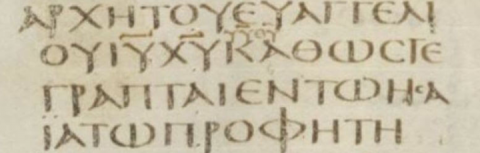 ΑΡΧΗΤΟΥΕΥΑΓΓΕΛΙ
ΟΥΙΥΧΥΚΑΘΩΣΓΕ
ΓΡΑΠΤΑΙΕΝΤΩΗΣΑ
ΙΑΤΩΠΡΟΦΗΤΗ